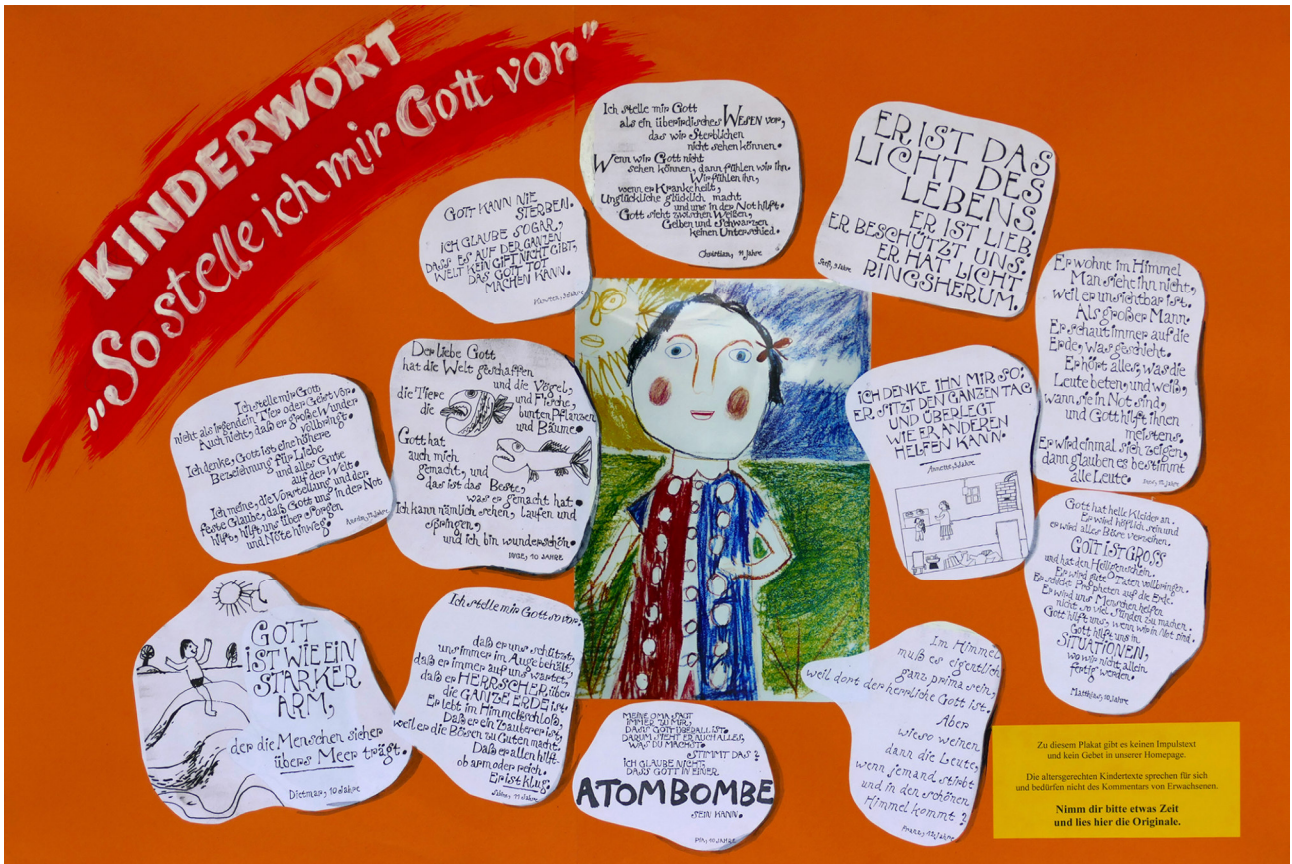 KINDERWORT
„So stelle ich mir Gott vor"
Ich stelle mir Gott
als ein überirdisches WESEN vor,
das wir Sterblichen
nicht sehen können.
Wenn wir Gott nicht
sehen können, dann fühlen wir ihn.
Wir fühlen ihn,
wenn er Kranke heilt,
Unglückliche glücklich macht
und uns in der Not hilft.
Gott sieht zwischen Weißen,
Gelben und Schwarzen
keinen Unterschied.
Christian, 11 Jahre
ER IST DAS
LICHT DES
LEBENS.
ER IST LIEB.
ER BESCHÜTZT UNS.
ER HAT LICHT
RINGSHERUM.
9 Jahre
GOTT KANN NIE
STERBEN.
ICH GLAUBE SOGAR,
DASS ES AUF DER GANZEN
WELT KEIN GIFT NICHT GIBT,
DAS GOTT TOT
MACHEN KANN.
Er wohnt im Himmel
Man sieht ihn nicht,
weil er unsichtbar ist.
Als großer Mann.
Er schaut immer auf die
Erde, was geschieht.
Er hört alles, was die
Leute beten, und weiß,
wann sie in Not sind,
und Gott hilft ihnen
meistens.
Er wird einmal sich zeigen,
dann glauben es bestimmt
alle Leute.
Der liebe Gott
hat die Welt geschaffen
und die Vögel,
die Tiere
und Fische,
die
bunten Pflanzen
und Bäume.
Gott hat
auch mich
gemacht, und
das ist das Beste,
was er gemacht hat.
Ich kann nämlich sehen, laufen und
springen,
und ich bin wunderschön.
INGE, 10 JAHRE
ICH DENKE IHN MIR SO:
ER SITZT DEN GANZEN TAG
UND ÜBERLEGT
WIE ER ANDEREN
HELFEN KANN.
Annette, 9 Jahre
Ich stelle mir Gott
nicht als irgendein Tier oder Geist vor.
Auch nicht, daß er große Wunder
vollbringt.
Ich denke, Gott ist eine höhere
Beziehung für Liebe
und alles Gute
auf der Welt.
Ich meine, die Vorstellung und der
feste Glaube, daß Gott uns in der Not
hilft, hilft uns über Sorgen
und Nöte hinweg.
Gott hat helle Kleider an.
Er wird höflich sein und
er wird alles Böse verzeihen.
GOTT IST GROSS
und hat den Heiligenschein.
Er wird gute Taten vollbringen.
Er schickt Propheten auf die Erde.
Er wird uns Menschen helfen
nicht so viel Sünden zu machen.
Gott hilft uns, wenn wir in Not sind.
Gott hilft uns in
SITUATIONEN,
wo wir nicht allein
fertig werden.
Matthias, 10 Jahre
GOTT
IST WIE EIN
STARKER
ARM,
der die Menschen sicher
übers Meer trägt.
Dietmar, 10 Jahre
Ich stelle mir Gott so vor:
daß er uns schützt,
uns immer im Auge behält,
daß er immer auf uns wartet,
daß er HERRSCHER über
die GANZE ERDE ist.
Er lebt im Himmelsschloß,
Daß er ein Zauberer ist,
weil er die Bösen zu Guten macht.
Daß er allen hilft.
ob arm oder reich.
Er ist klug.
Sabine, 11 Jahre
MEINE OMA SAGT
IMMER ZU MIR,
DASS GOTT ÜBERALL IST.
DARUM SIEHT ER AUCH ALLES,
WAS DU MACHST.
STIMMT DAS?
ICH GLAUBE NICHT,
DASS GOTT IN EINER
ATOMBOMBE
SEIN KANN.
PIA, 10 JAHRE
Im Himmel
muß es eigentlich
ganz prima sein,
weil dort der herrliche Gott ist.
Aber
wieso weinen
dann die Leute,
wenn jemand stirbt
und in den schönen
Himmel kommt?
Franz, 12 Jahre
Zu diesem Plakat gibt es keinen Impulstext
und kein Gebet in unserer Homepage.
Die altersgerechten Kindertexte sprechen für sich
und bedürfen nicht des Kommentars von Erwachsenen.
Nimm dir bitte etwas Zeit
und lies hier die Originale.